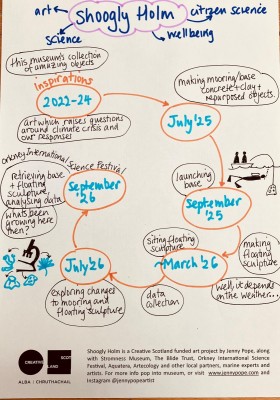 art
Shoogly Holm
citizen science
science
wellbeing
this museum's collection
of amazing objects
Inspirations
2022-24
art which raises questions
around climate crisis and
our responses
making mooring/base
concrete + clay +
repurposed objects.
July '25
launching
base
September
'25
making
floating
sculpture
Well, it depends
on the weather...
Siting floating
sculpture
March '26
data
collection
exploring changes
to mooring and
floating sculpture
July 26
Orkney International Science Festival
September
'26
retrieving base
+ floating
sculpture,
analysing data
whats been
growing here
then?
CREATIVE SCOTLAND
ALBA | CHRUTHACHAIL
Shoogly Holm is a Creative Scotland funded art project by Jenny Pope, along
with Stromness Museum, The Blide Trust, Orkney International Science
Festival, Aquatera, Artecology and other local partners, marine experts and
artists. For more info pop into museum, or visit www.jennypope.com and
Instagram @jennypopeartist